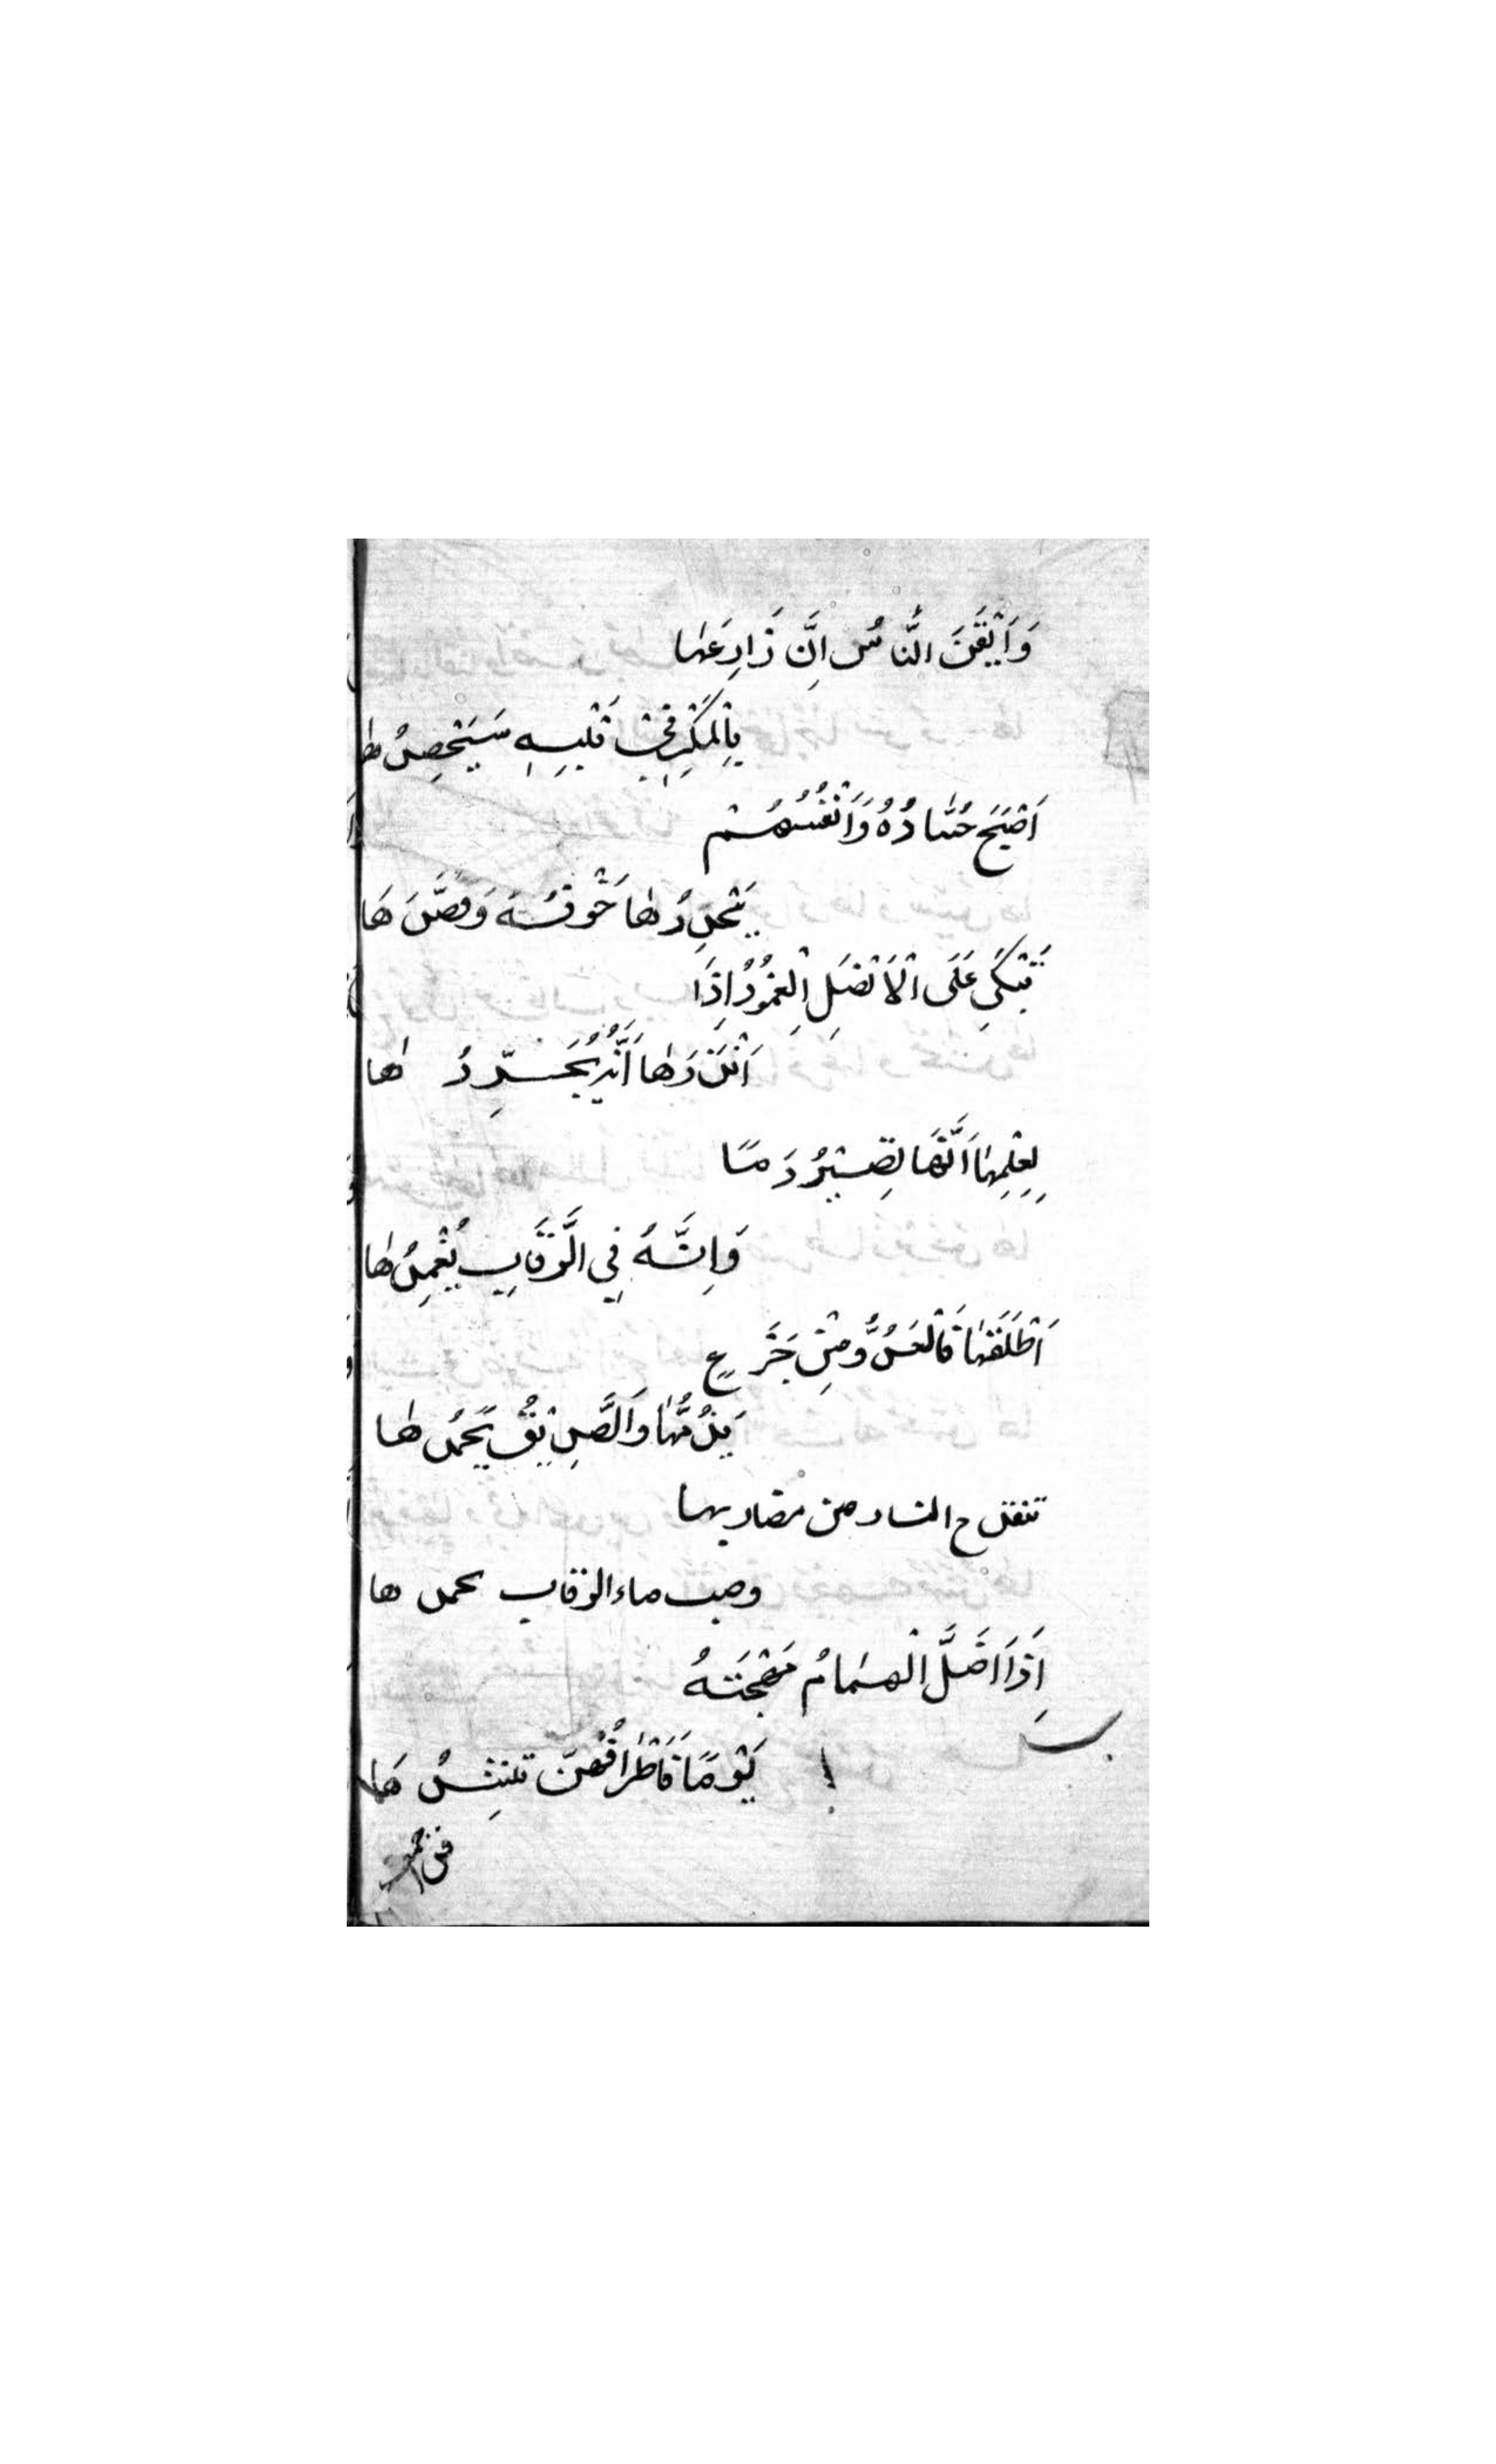 وَاَيْقَنَ النَّاسُ اِنَّ زَارِعَهَا
بِالْمَكْرِ فِيْ قَلْبِهِ سَيَحْصِدُهَا
اَصْبَحَ حُسَّادُهُ وَاَنْفُسُهُمْ
يُحْدِرُهَا خَوْفُهُ وَيُصَعِّدُهَا
تَبْكِي عَلَى الْاَنْصَلِ الْغُمُوْدُ اِذَا
اَنْذَرَهَا اَنَّهُ يُجَرِّدُهَا
لِعِلْمِهَا اَنَّهَا تَصِيْرُ دَمًا
وَاِنَّهُ فِي الرِّقَابِ يُغْمِدُهَا
اَطْلَقَهَا فَالْعَدُوُّ مِنْ جَزَعٍ
يَذُمُّهَا وَالصَّدِيْقُ يَحْمَدُهَا
تنقدح النار من مضاربها
وصب ماء الرقاب يخمدها
اِذَا اَضَلَّ الْهُمَامُ مُهْجَتَهُ
يَوْمًا فَاَطْرَافُهُنَّ تَنْشِدُهَا